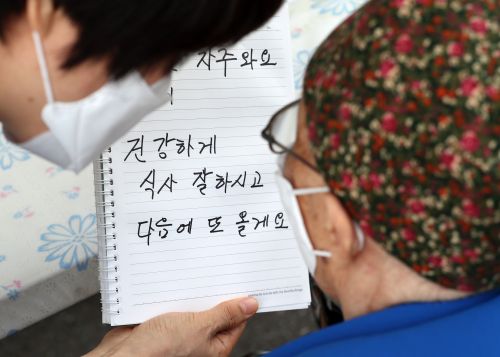 자주와요
건강하게
식사 잘하시고
다음에 또 올게요